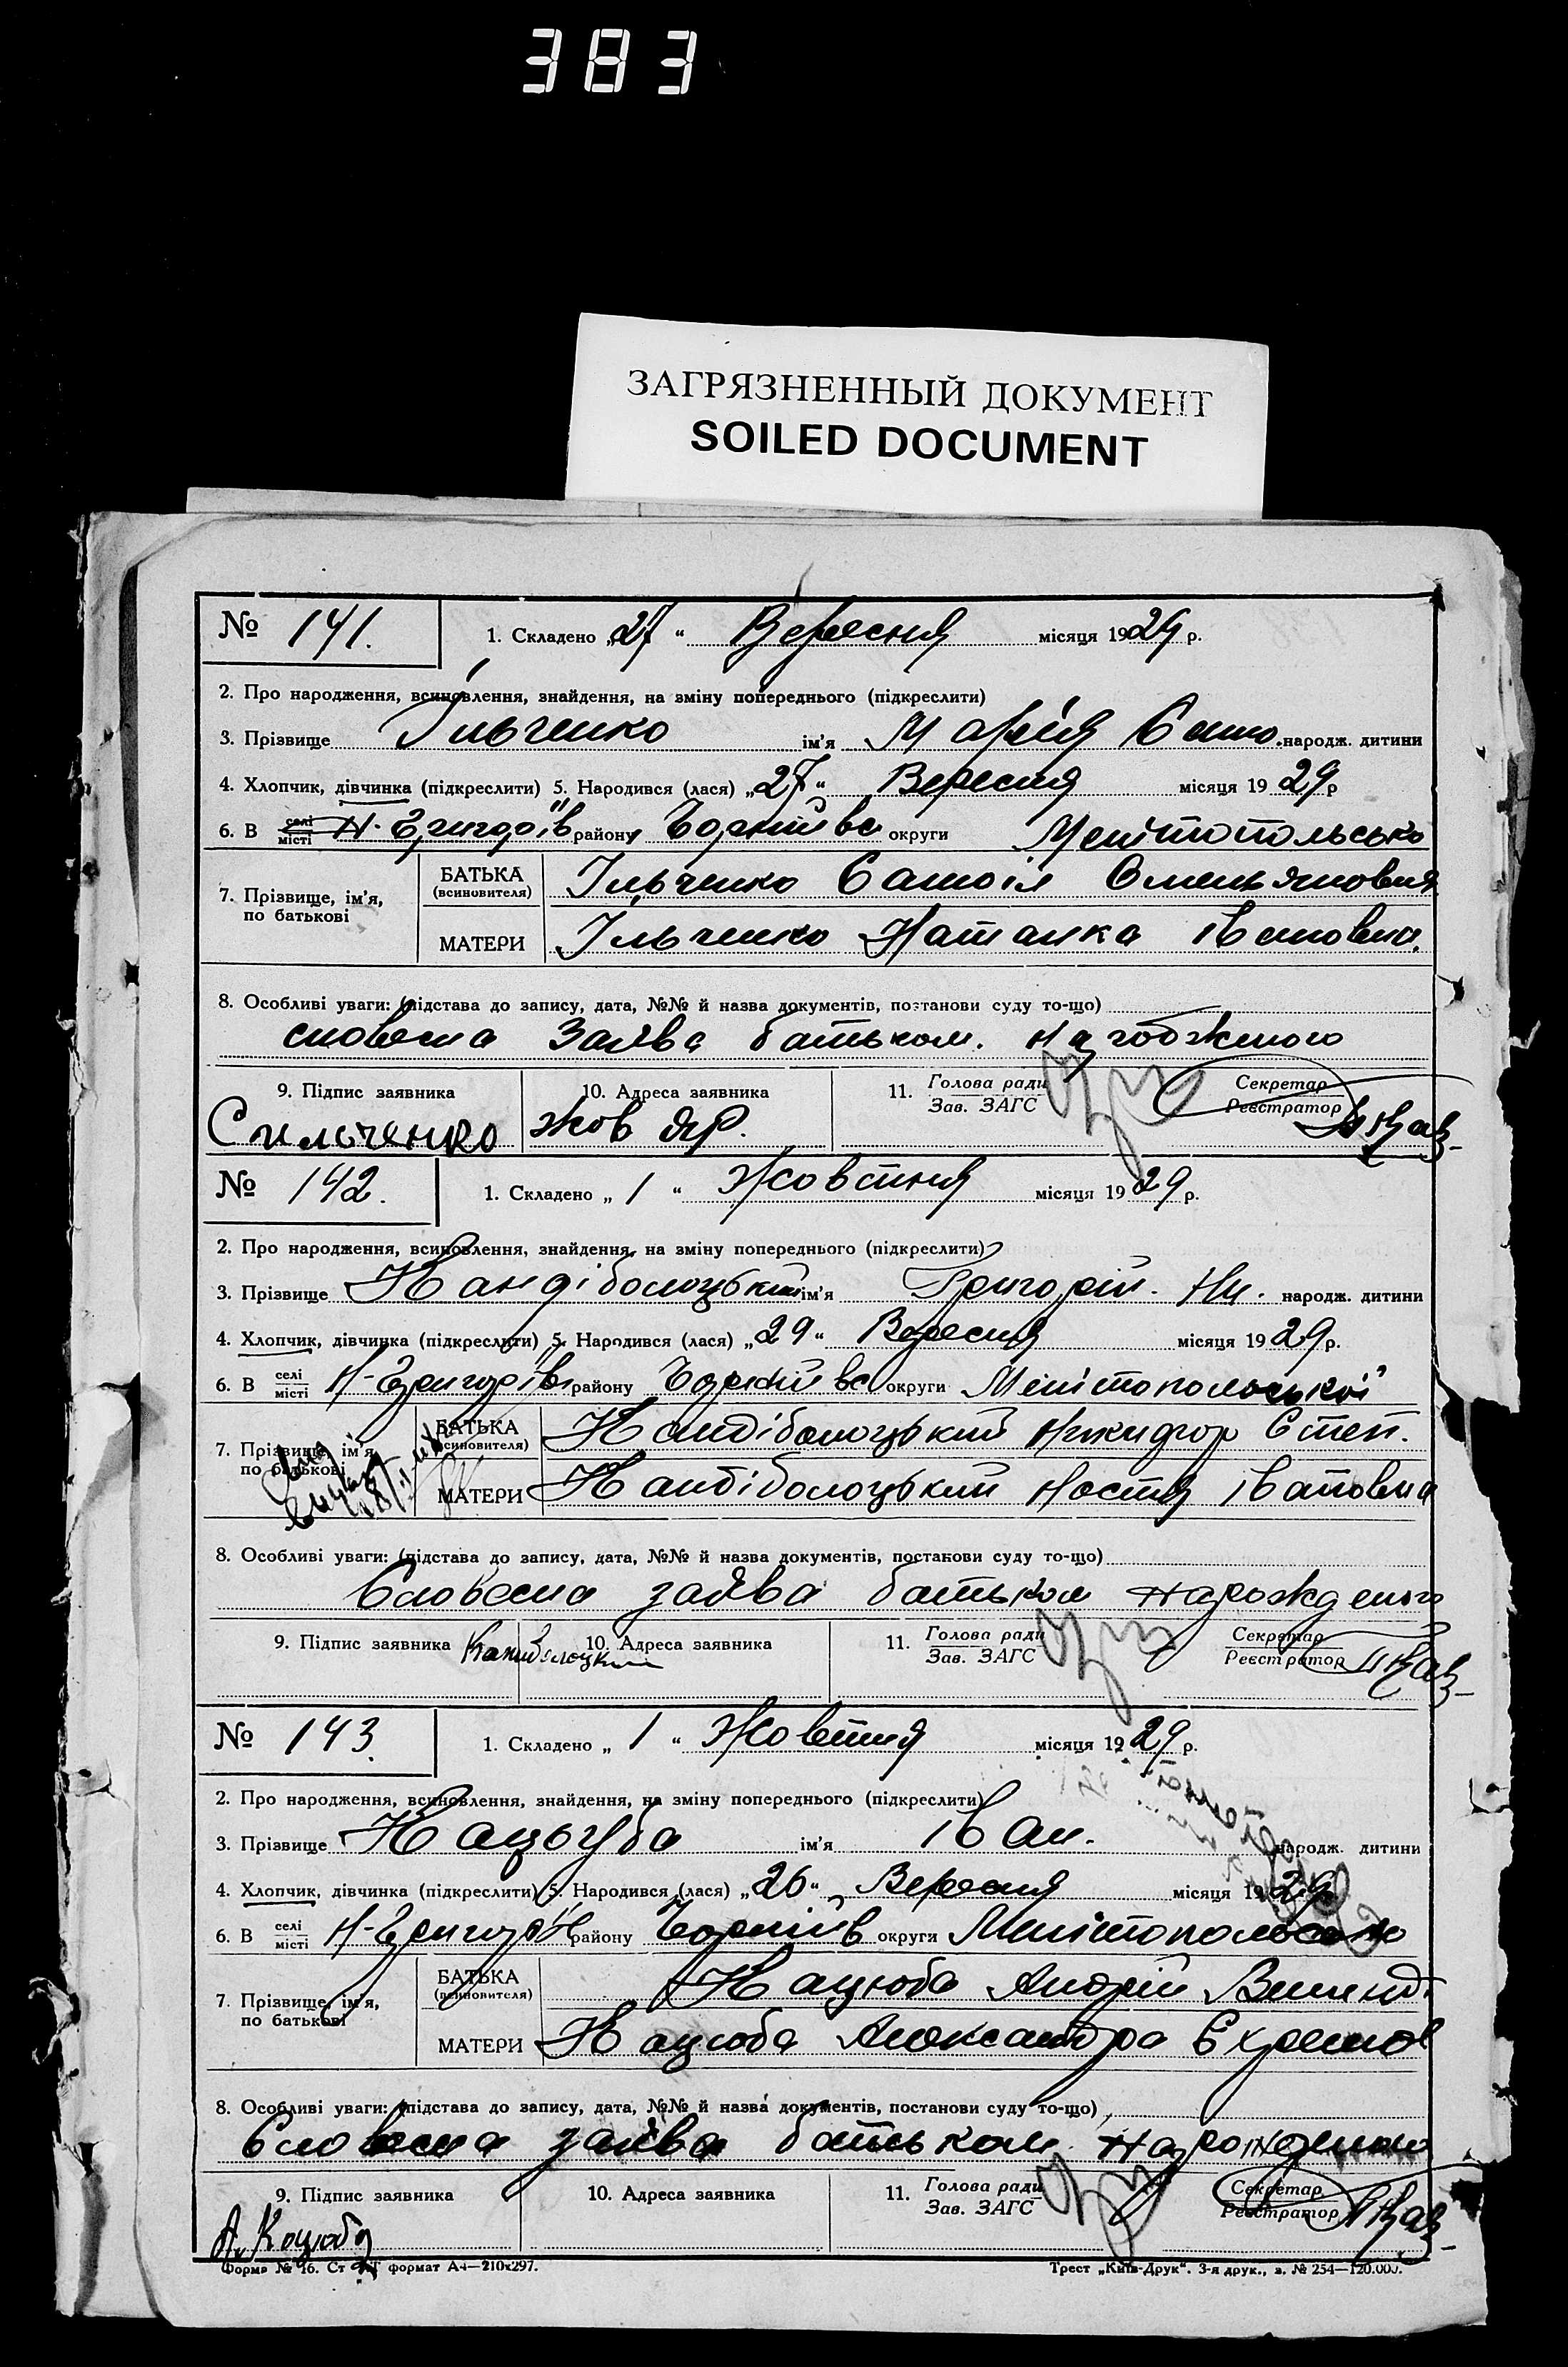 383
ЗАГРЯЗНЕННЫЙ ДОКУМЕНТ
SOILED DOCUMENT
№ 141. 1. Складено „27“ Вересня місяця 1929 р.
2. Про народження, всиновлення, знайдення, на зміну попереднього (підкреслити)
3. Прізвище Ільченко ім'я Марія Само. народж. дитини
4. Хлопчик, дівчинка (підкреслити) 5. Народився (лася) „27“ Вересня місяця 1929 р
6. В селі місті Н-Григорів району Чернігівс округи Мелітопольсько
7. Прізвище, ім'я, по батькові БАТЬКА (всиновителя) Ільченко Самоіл Омельянович
МАТЕРИ Ільченко Наталка Івановна.
8. Особливі уваги: (підстава до запису, дата, №№ й назва документів, постанови суду то-що)
словесна Заява батьком.
9. Підпис заявника 10. Адреса заявника 11. Голова ради Зав. ЗАГС Секретар Реєстратор
Сильченко
№ 142. 1. Складено „1“ Жовтня місяця 1929 р.
2. Про народження, всиновлення, знайдення, на зміну попереднього (підкреслити)
3. Прізвище Кандіболоцький ім'я Григорій. Ни. народж. дитини
4. Хлопчик, дівчинка (підкреслити) 5. Народився (лася) „29“ Вересня місяця 1929 р.
6. В селі місті Н-Григорів району Чернігівс округи Мелітопольської
7. Прізвище, ім'я, по батькові БАТЬКА (всиновителя) Кандіболоцький Никифор Степ.
МАТЕРИ Кандіболоцький Настя Івановна
8. Особливі уваги: (підстава до запису, дата, №№ й назва документів, постанови суду то-що)
Словесна заява батьком нарожденого
9. Підпис заявника 10. Адреса заявника 11. Голова ради Зав. ЗАГС Секретар Реєстратор
№ 143. 1. Складено „1“ Жовтня місяця 1929 р.
2. Про народження, всиновлення, знайдення, на зміну попереднього (підкреслити)
3. Прізвище Кацюба ім'я Іван. народж. дитини
4. Хлопчик, дівчинка (підкреслити) 5. Народився (лася) „26“ Вересня місяця 1929
6. В селі місті Н-Григорів району Чернігів округи Мелітопольсько
7. Прізвище, ім'я, по батькові БАТЬКА (всиновителя) Кацюба Андрій
МАТЕРИ Кацюба Александра Єхремов
8. Особливі уваги: (підстава до запису, дата, №№ й назва документів, постанови суду то-що)
Словесна заява батьком нарожденого
9. Підпис заявника 10. Адреса заявника 11. Голова ради Зав. ЗАГС Секретар Реєстратор
А. Кацюба
Форма № 16. Ст формат А4—210х297. Трест „Київ-Друк“. 3-я друк., з. № 254—120.000.